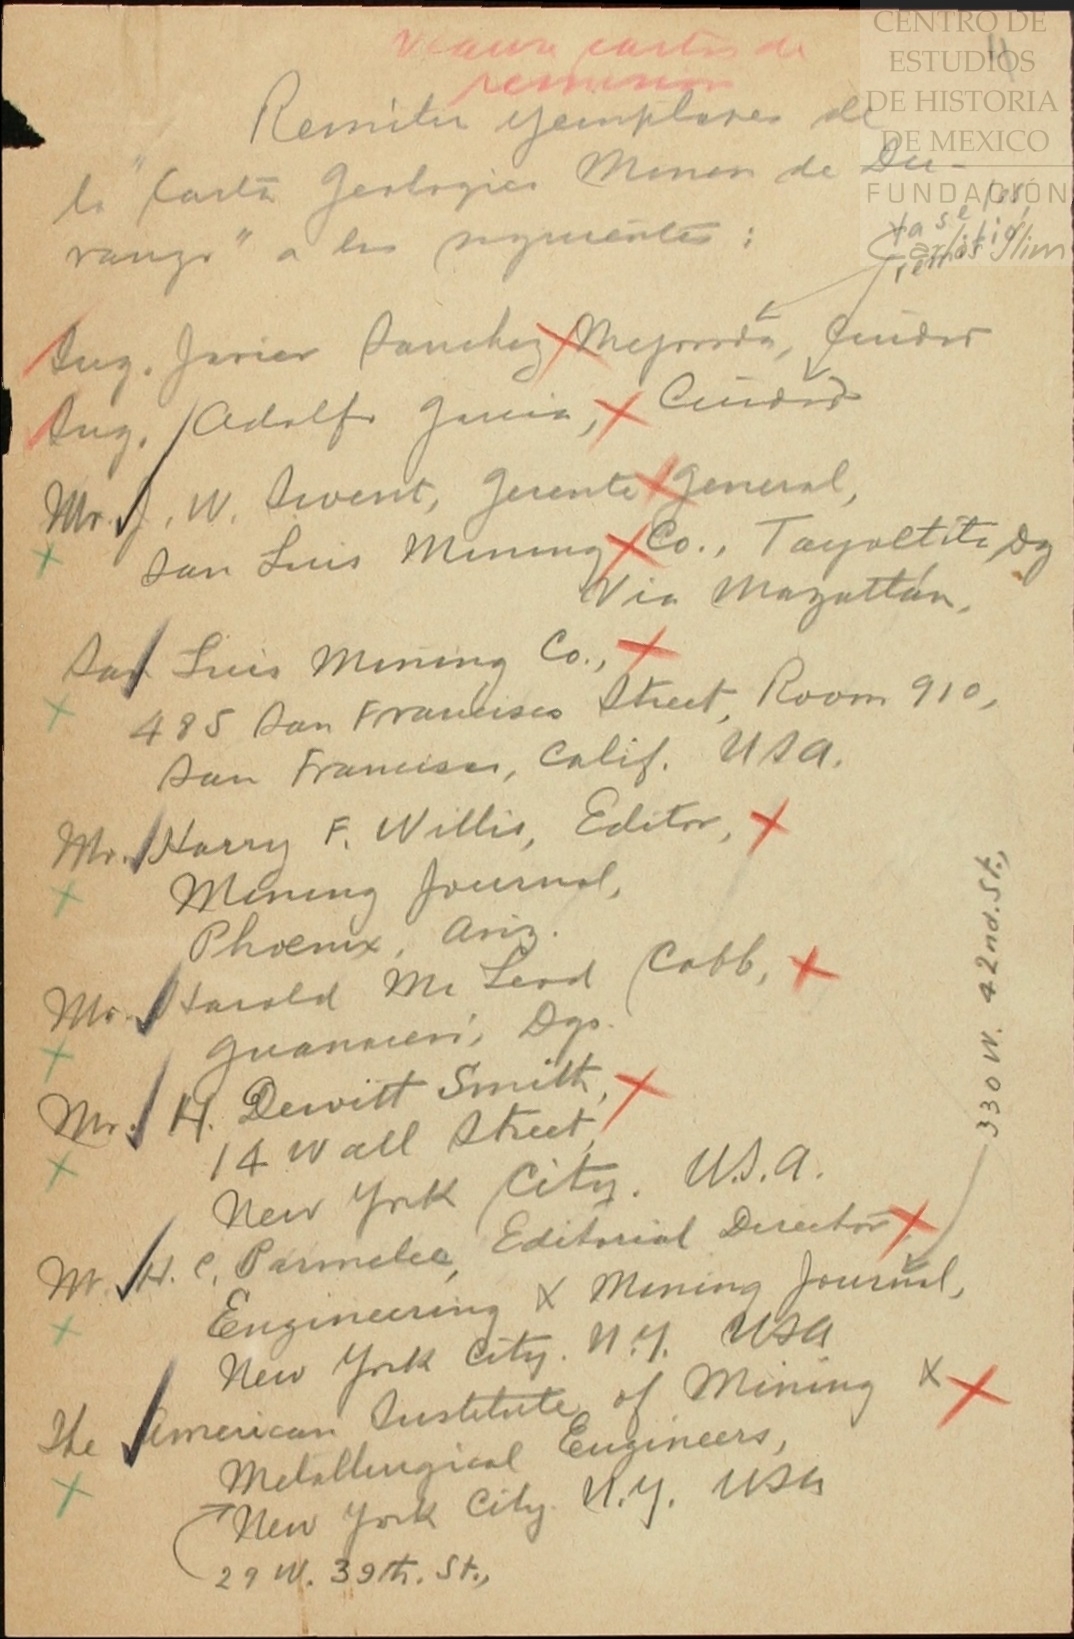 CENTRO DE
ESTUDIOS
DE HISTORIA
DE MEXICO
FUNDACIÓN
cartas de
Remitir ejemplares de
la "Carta Geologico Minera de Du-
rango" a los siguientes:
Ing. Javier Sanchez Mejorada, Ciudad
Ing. Adolfo Garcia, Ciudad
Mr. J. W. Swent, Gerente General,
San Luis Mining Co., Tayoltita, Dgo
Via Mazatlán.
San Luis Mining Co.,
485 San Francisco Street, Room 910,
San Francisco, Calif. USA.
Mr. Harry F. Willis, Editor,
Mining Journal,
Phoenix, Ariz.
Mr. Harold Mc Leod Cobb,
Guanacevi, Dgo.
Mr. H. Dewitt Smith,
14 Wall Street,
New York City. U.S.A.
Mr. H. C. Parmelee, Editorial Director
Engineering X Mining Journal,
330 W. 42nd. St.,
New York City. N.Y. USA
The American Institute of Mining X
Metallurgical Engineers,
New York City. N.Y. USA
29 W. 39th. St.,